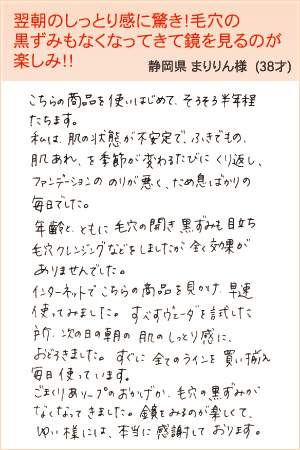 翌朝のしっとり感に驚き!毛穴の
黒ずみもなくなってきて鏡を見るのが
楽しみ!!
静岡県 まりりん様 (38才)
こちらの商品を使いはじめて、そろそろ半年程
たちます。
私は、肌の状態が不安定で、ふきでもの、
肌あれ、を季節が変わるたびに くり返し、
ファンデーションの のりが悪く、ため息ばかりの
毎日でした。
年齢と、ともに 毛穴の開き 黒ずみも 目立ち
毛穴クレンジングなどをしましたが 全く効果が
ありませんでした。
インターネットで こちらの商品を 見かけ、早速
使ってみました。 すべすヴェーダを試した
所、次の日の朝の 肌のしっとり感に、
おどろきました。 すぐに 全てのラインを 買い揃え
毎日使っています。
ごまくりあソープの おかげか、毛穴の黒ずみが
なくなって きました。 鏡をみるのが楽しくて、
ゆい様には、本当に 感謝して おります。